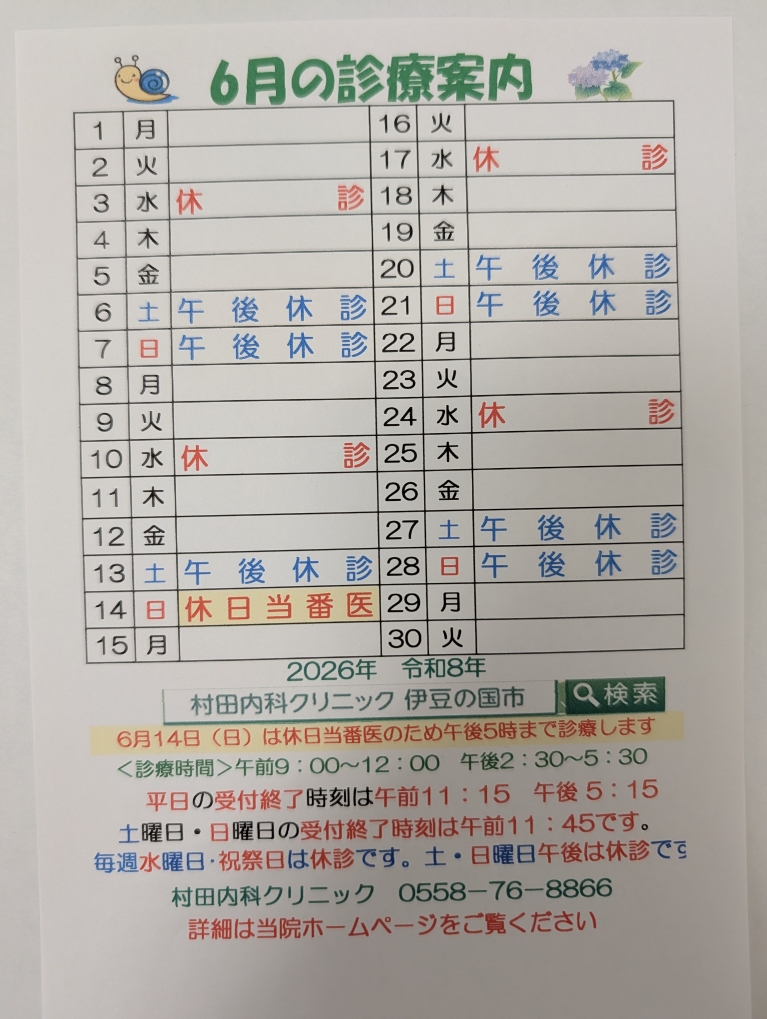 6月の診療案内
1 月
2 火
3 水 休診
4 木
5 金
6 土 午後休診
7 日 午後休診
8 月
9 火
10 水 休診
11 木
12 金
13 土 午後休診
14 日 休日当番医
15 月
16 火
17 水 休診
18 木
19 金
20 土 午後休診
21 日 午後休診
22 月
23 火
24 水 休診
25 木
26 金
27 土 午後休診
28 日 午後休診
29 月
30 火
2026年 令和8年
村田内科クリニック 伊豆の国市 検索
6月14日（日）は休日当番医のため午後5時まで診療します
＜診療時間＞午前9：00～12：00 午後2：30～5：30
平日の受付終了時刻は午前11：15 午後5：15
土曜日・日曜日の受付終了時刻は午前11：45です。
毎週水曜日・祝祭日は休診です。土・日曜日午後は休診です
村田内科クリニック 0558－76－8866
詳細は当院ホームページをご覧ください